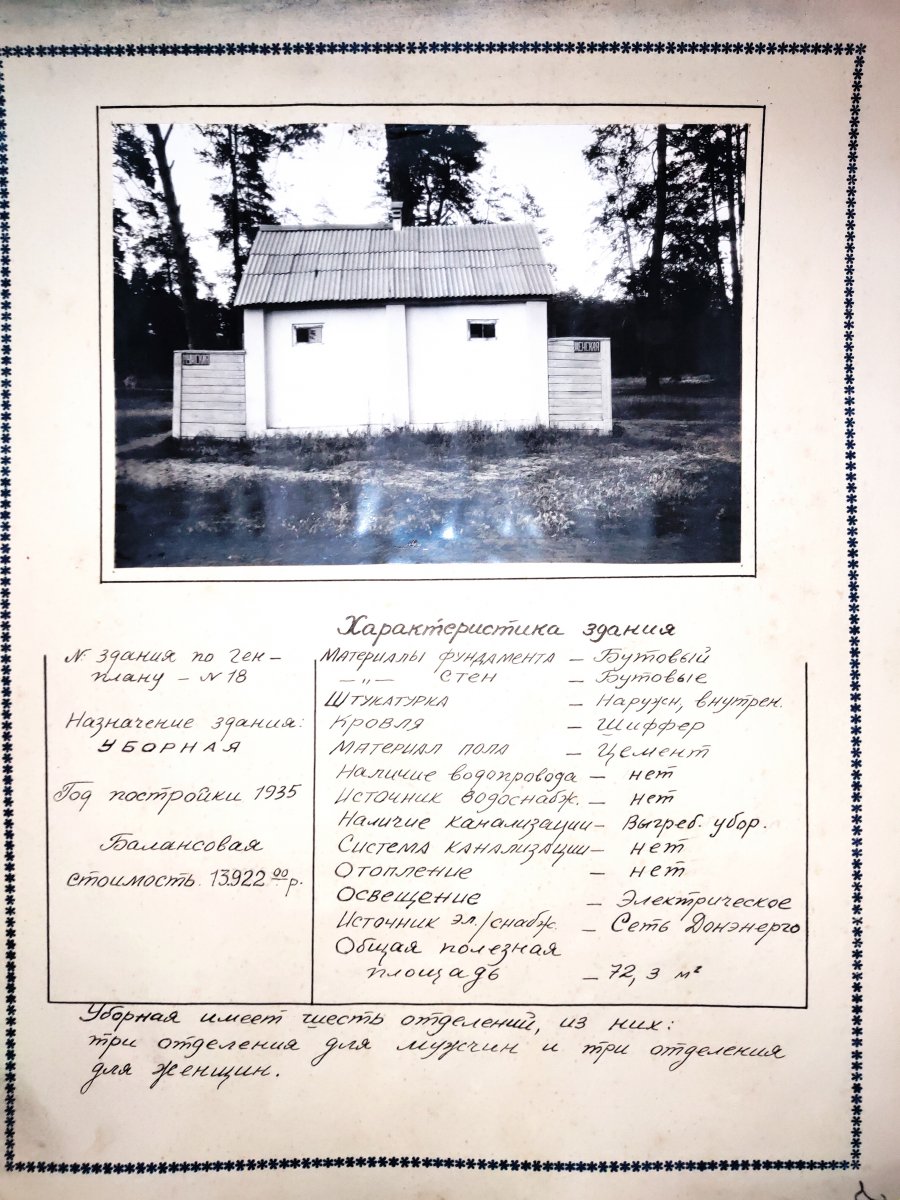 ЖЕНСКАЯ
Характеристика здания
№ здания по ген-
плану – N 18
Назначение здания:
УБОРНАЯ
Год постройки 1935
Балансовая
стоимость. 13.922 00 р.
Материалы фундамента – Бутовый
–„– стен – Бутовые
Штукатурка – Наружн, внутрен.
Кровля – Шиффер
Материал пола – Цемент
Наличие водопровода – нет
Источник водоснабж. – нет
Наличие канализации – Выгреб. убор.
Система канализации – нет
Отопление – нет
Освещение – Электрическое
Источник эл./снабж. – Сеть Донэнерго
Общая полезная
площадь – 72,3 м²
Уборная имеет шесть отделений, из них:
три отделения для мужчин и три отделения
для женщин.